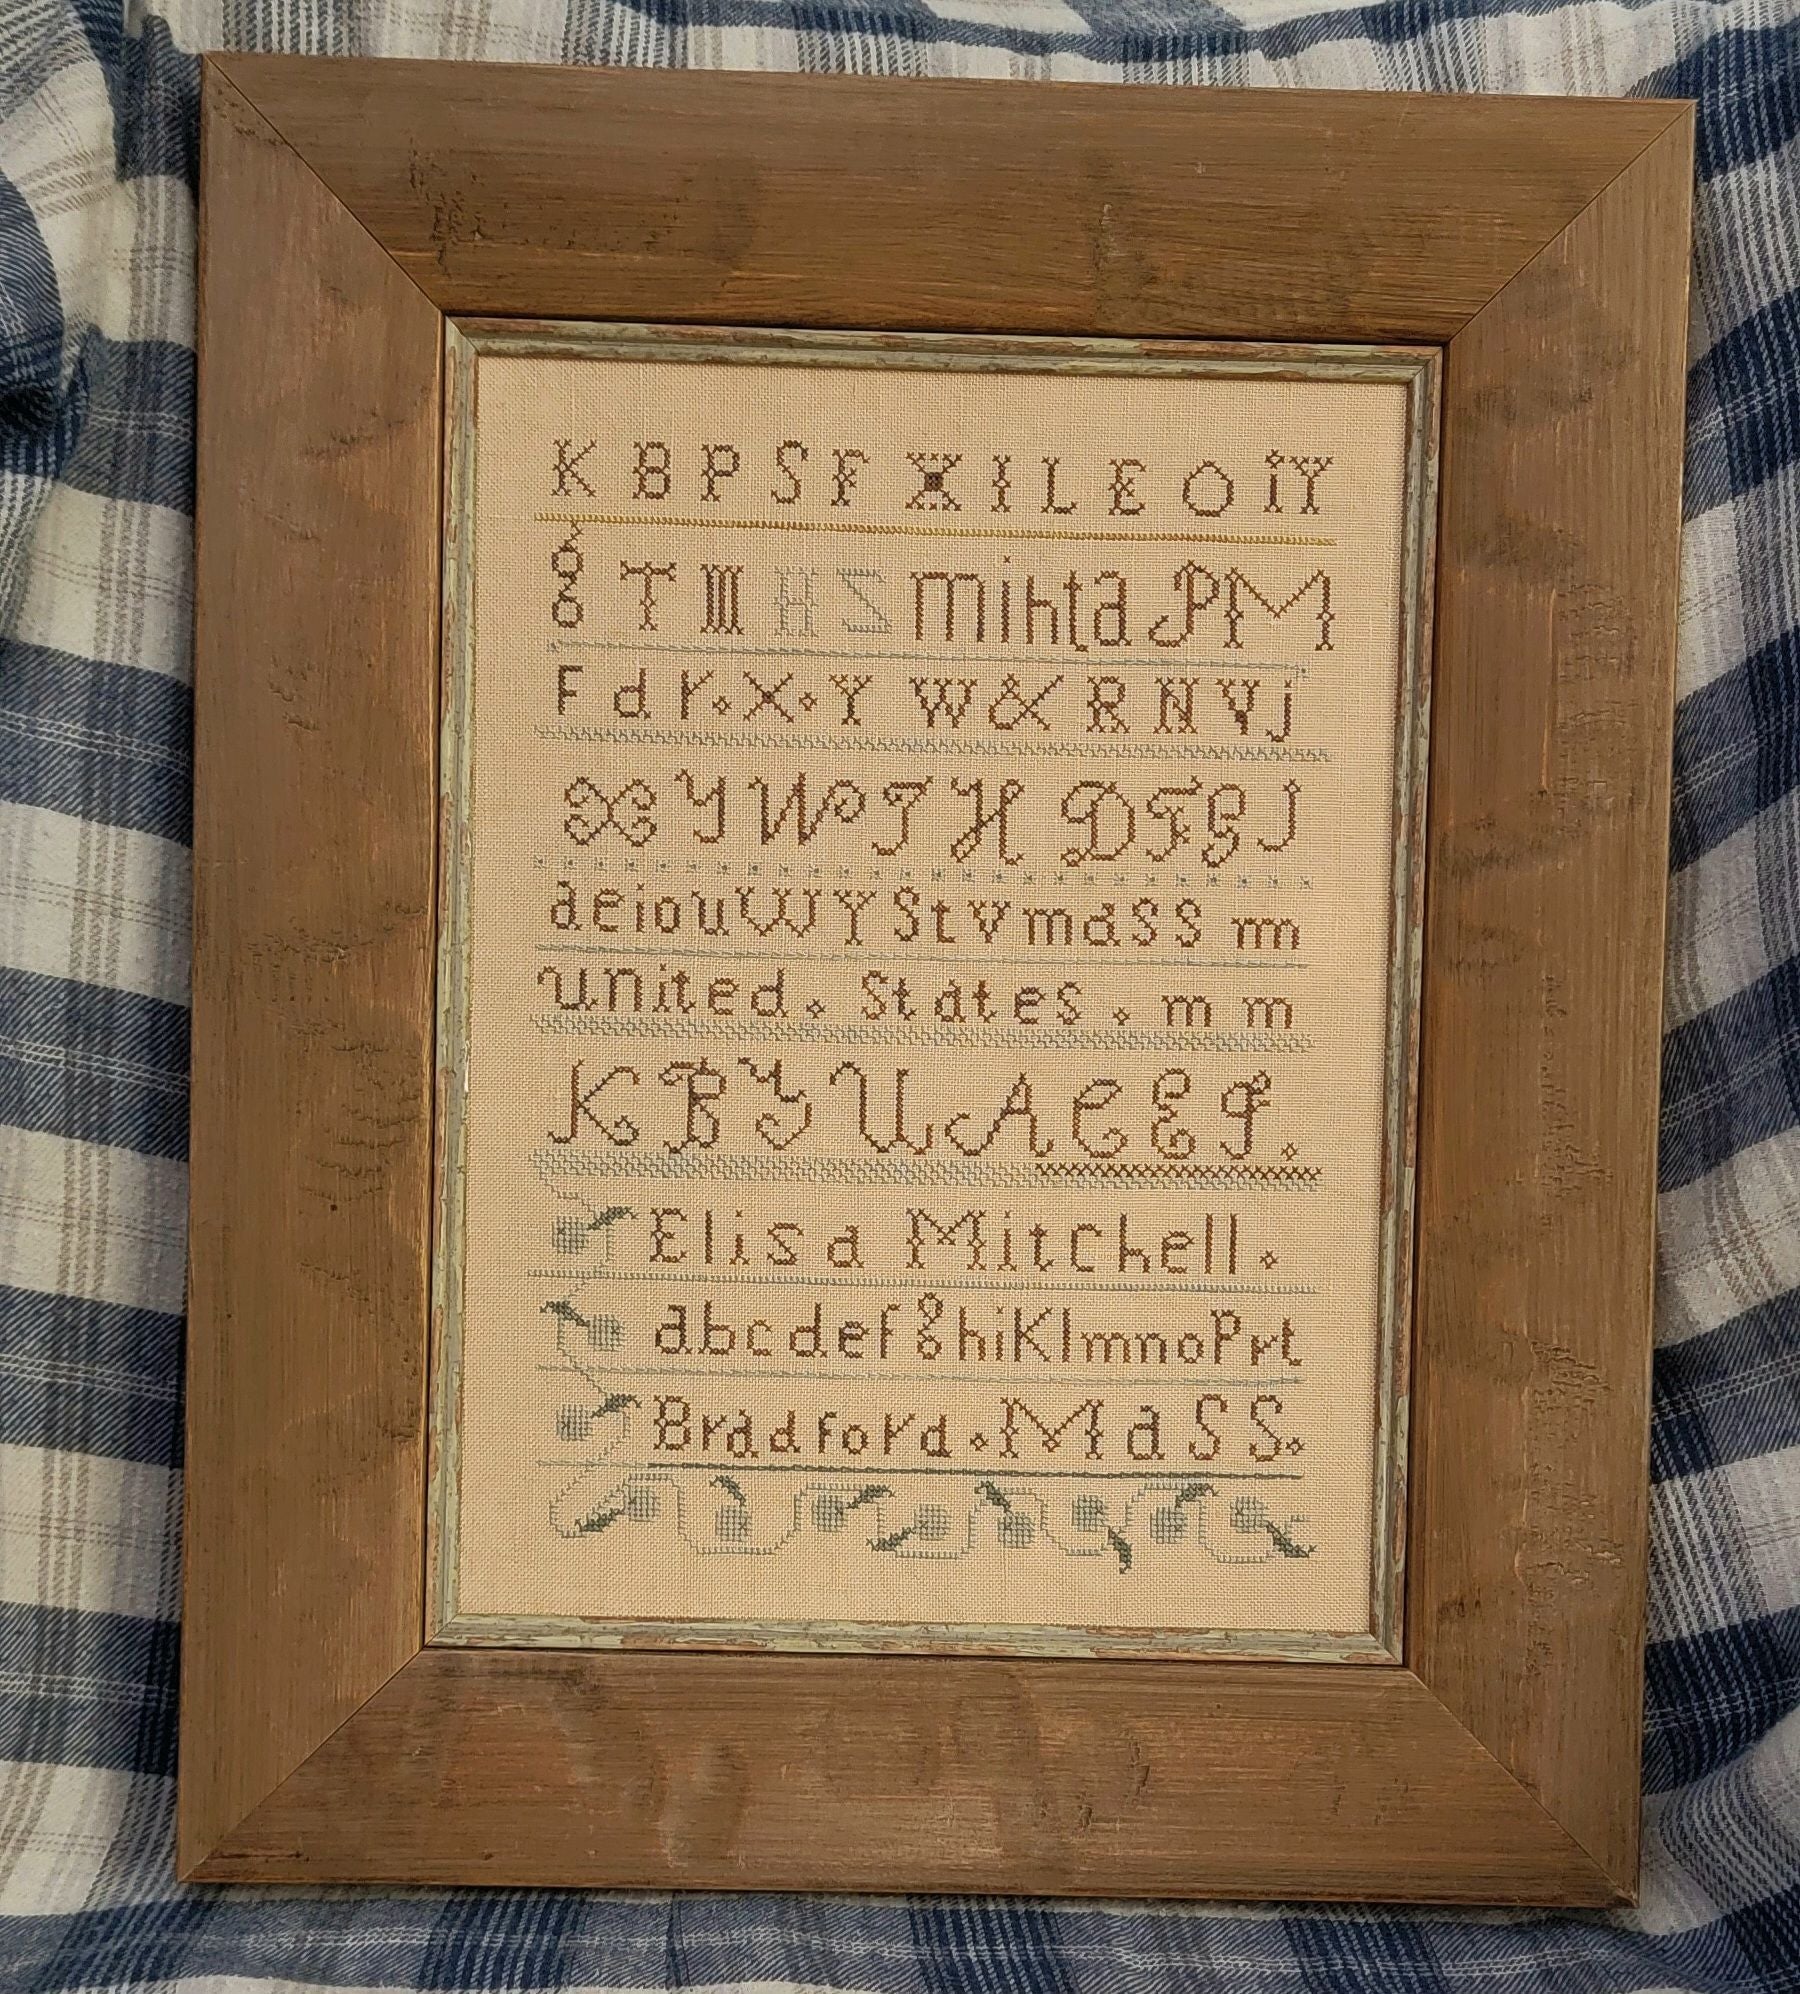 K B P S F X I L E O i Y
g T M H S m i h t a P M
F d r . X . Y W & R N V j
X Y W I H D F G J
a e i o u W Y S t v m a S S m
united . States . m m
K B Y U A C E I .
Elisa Mitchell .
a b c d e f g h i K l m n o P r t
Bradford . Mass .